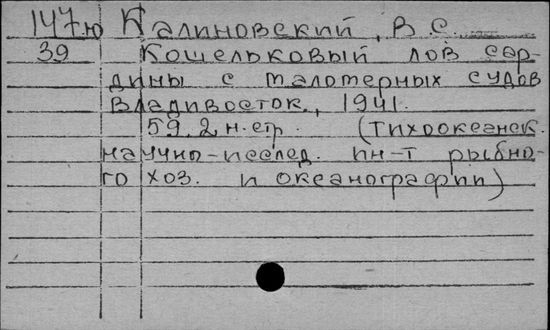 147ю Калиновский, В.С.
39 Кошельковый лов сар-
дины с малотерных судов
Владивосток, 1941.
59, 2 н.стр. (Тихоокеанск.
научно-исслед. ин-т рыбно-
го хоз. и океанографии)